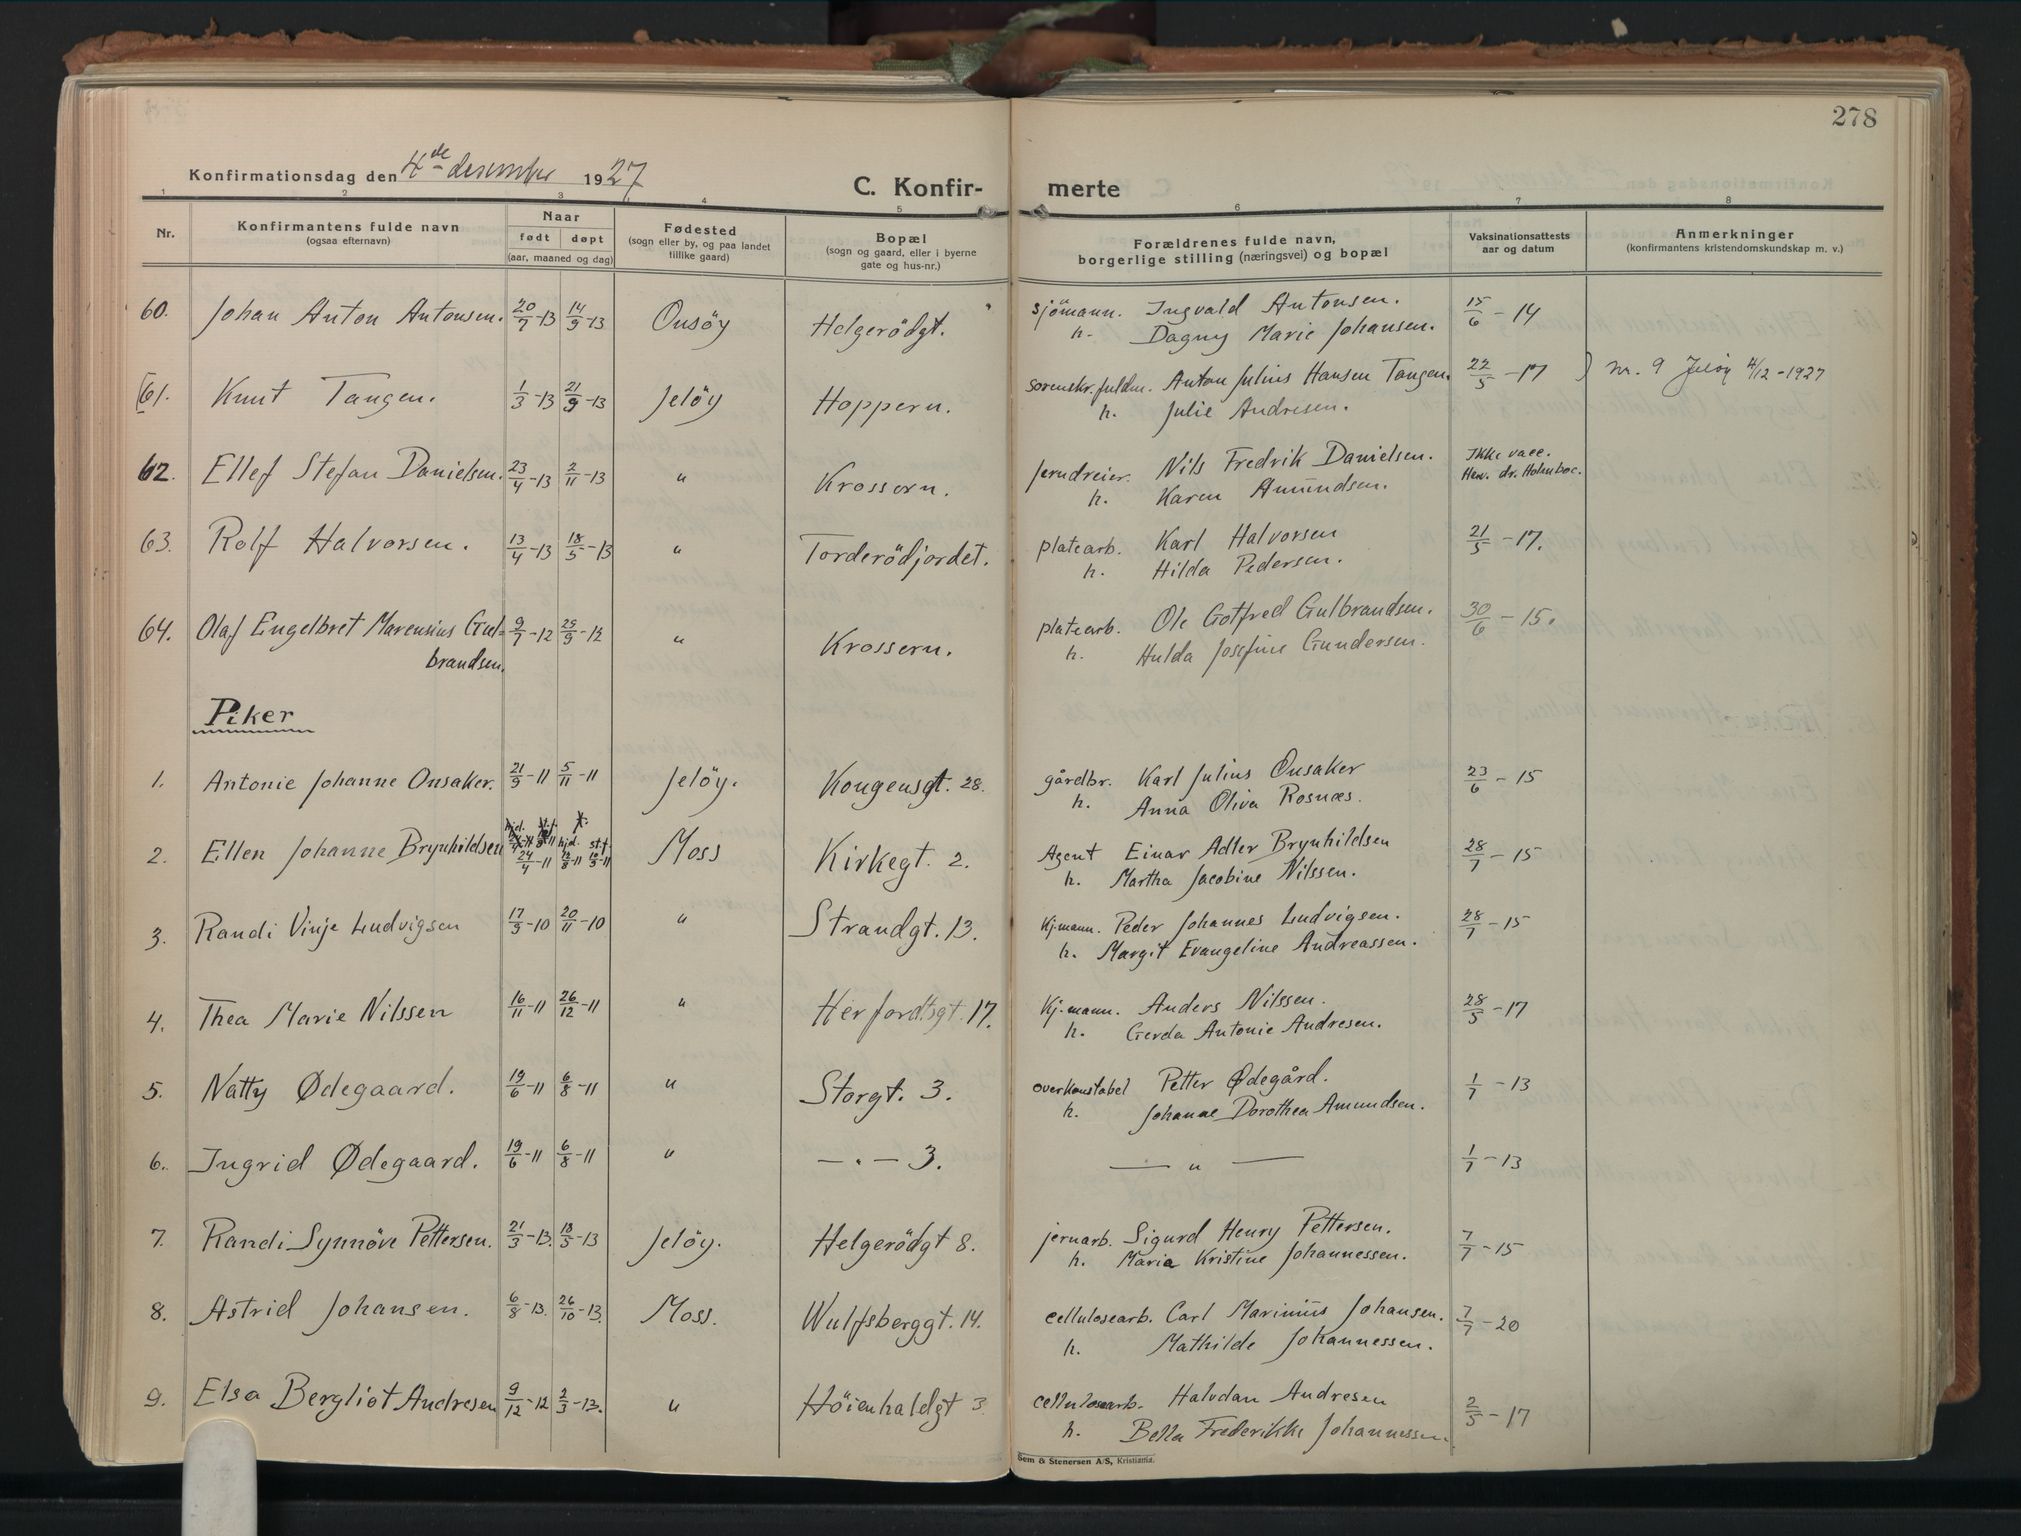 278
Konfirmationsdag den 4de desember 1927
C. Konfir- merte
1 2 3 4 5 6 7 8
Nr.
Konfirmantens fulde navn
(ogsaa efternavn)
Naar
født døpt
(aar, maaned og dag)
Fødested
(sogn eller by, og paa landet
tillike gaard)
Bopæl
(sogn og gaard, eller i byerne
gate og hus-nr.)
Forældrenes fulde navn,
borgerlige stilling (næringsvei) og bopæl
Vaksinationsattests
aar og datum
Anmerkninger
(konfirmantens kristendomskundskap m. v.)
60. Johan Anton Antonsen. 20/7-13 14/9-13 Onsöy Helgerödgt. sjömann. Ingvald Antonsen. 15/6-14
h. Dagny Marie Johansen.
61. Knut Tangen. 1/3-13 21/9-13 Jelöy Hoppern. sorenskr.fuldm. Anton Julius Hansen Tangen. 22/5-17 } nr. 9 Jelöy 4/12-1927
h. Julie Andresen.
62. Ellef Stefan Danielsen. 23/4-13 2/11-13 " Krossern. jerndreier. Nils Fredrik Danielsen. Ikke vacc.
h. Karen Amundsen. Henv. dr. Holmboe.
63. Rolf Halvorsen. 13/4-13 18/5-13 " Torderödjordet. platearb. Karl Halvorsen 21/5-17.
h. Hilda Pedersen.
64. Olaf Engelbret Marensius Gul- 9/7-12 29/9-12 " Krossern. platearb. Ole Gotfred Gulbrandsen. 30/6-15.
brandsen. h. Hulda Josefine Gundersen.
Piker
1. Antonie Johanne Onsaker. 21/9-11 5/11-11 Jelöy. Kongensgt. 28. gårdbr. Karl Julius Onsaker 23/6-15
h. Anna Oliva Rosnæs.
2. Ellen Johanne Brynhildsen 24/4-11 hjd. st.f. Moss Kirkegt. 2. Agent Einar Adler Brynhildsen 28/7-15
h. Martha Jacobine Nilssen.
3. Randi Vinje Ludvigsen 17/9-10 20/11-10 " Strandgt. 13. Kj.mann. Peder Johannes Ludvigsen. 28/7-15
h. Margit Evangeline Andreassen.
4. Thea Marie Nilssen 16/11-11 26/12-11 " Herfordtsgt. 17. Kj.mann. Anders Nilssen. 28/5-17
h. Gerda Antonie Andresen.
5. Natty Ødegaard. 19/6-11 6/8-11 " Storgt. 3. overkonstabel Petter Ødegård. 1/7-13
h. Johanne Dorothea Amundsen.
6. Ingrid Ødegaard. 19/6-11 6/8-11 " — " — 3. — " — 1/7-13
7. Randi Synnøve Pettersen. 21/3-13. 18/5-13 Jelöy. Helgerödgt 8. jernarb. Sigurd Henry Pettersen. 7/7-15
h. Maria Kristine Johannessen.
8. Astrid Johansen. 6/8-13. 26/10-13. Moss. Wulfsberggt. 14. cellulosearb. Carl Marinius Johansen. 7/7-20
h. Mathilde Johannessen.
9. Elsa Bergliot Andresen 9/12-12 2/3-13. " Höienhaldgt 3. cellulosearb. Halvdan Andresen 2/5-17
h. Bella Frederikke Johannessen.
Sem & Stenersen A/S, Kristiania.